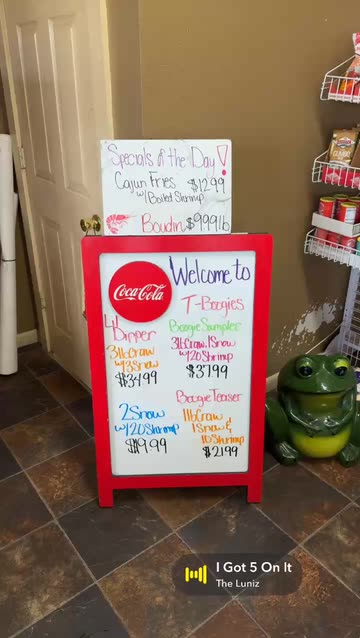 Specials of the Day!
Cajun Fries $12.99
w/Boiled Shrimp
Boudin $9.99 lb
Coca-Cola
Welcome to
T-Boogies
Lil
Dipper
3lbCraw
w/3Snow
$34.99
Boogie Sampler
3lbCraw, 1Snow
w/20Shrimp
$37.99
2Snow
w/20Shrimp
$19.99
Boogie Teaser
1lbCraw
1Snow &
10Shrimp
$21.99
I Got 5 On It
The Luniz